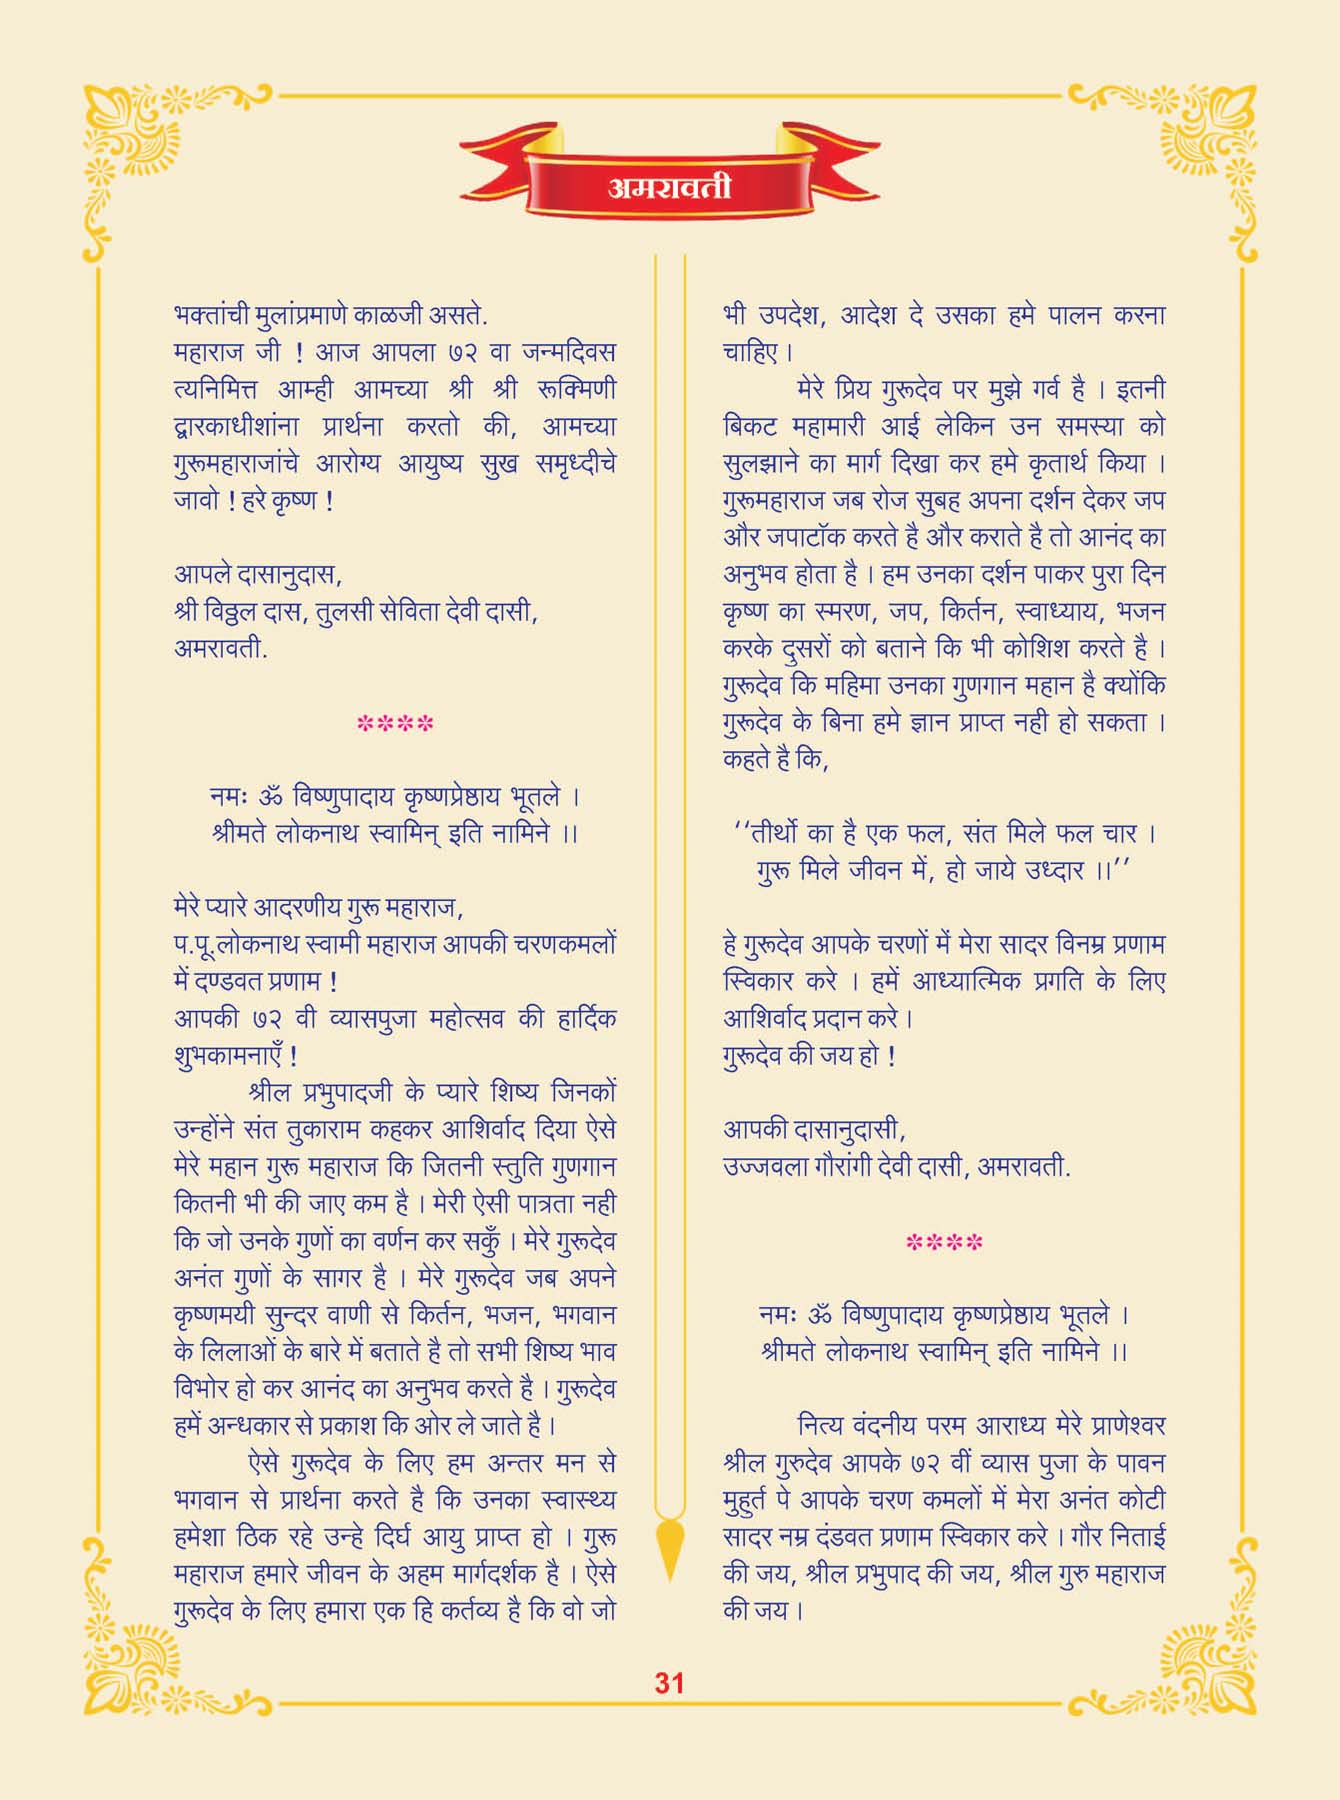 अमरावती
भक्तांची मुलांप्रमाणे काळजी असते.
महाराज जी ! आज आपला ७२ वा जन्मदिवस
त्यनिमित्त आम्ही आमच्या श्री श्री रूक्मिणी
द्वारकाधीशांना प्रार्थना करतो की, आमच्या
गुरूमहाराजांचे आरोग्य आयुष्य सुख समृध्दीचे
जावो ! हरे कृष्ण !
आपले दासानुदास,
श्री विठ्ठल दास, तुलसी सेविता देवी दासी,
अमरावती.
****
नमः ॐ विष्णुपादाय कृष्णप्रेष्ठाय भूतले ।
श्रीमते लोकनाथ स्वामिन् इति नामिने ।।
मेरे प्यारे आदरणीय गुरू महाराज,
प.पू.लोकनाथ स्वामी महाराज आपकी चरणकमलों
में दण्डवत प्रणाम !
आपकी ७२ वी व्यासपुजा महोत्सव की हार्दिक
शुभकामनाएँ !
श्रील प्रभुपादजी के प्यारे शिष्य जिनकों
उन्होंने संत तुकाराम कहकर आशिर्वाद दिया ऐसे
मेरे महान गुरू महाराज कि जितनी स्तुति गुणगान
कितनी भी की जाए कम है । मेरी ऐसी पात्रता नही
कि जो उनके गुणों का वर्णन कर सकुँ । मेरे गुरूदेव
अनंत गुणों के सागर है । मेरे गुरूदेव जब अपने
कृष्णमयी सुन्दर वाणी से किर्तन, भजन, भगवान
के लिलाओं के बारे में बताते है तो सभी शिष्य भाव
विभोर हो कर आनंद का अनुभव करते है । गुरूदेव
हमें अन्धकार से प्रकाश कि ओर ले जाते है ।
ऐसे गुरूदेव के लिए हम अन्तर मन से
भगवान से प्रार्थना करते है कि उनका स्वास्थ्य
हमेशा ठिक रहे उन्हे दिर्घ आयु प्राप्त हो । गुरू
महाराज हमारे जीवन के अहम मार्गदर्शक है । ऐसे
गुरूदेव के लिए हमारा एक हि कर्तव्य है कि वो जो
भी उपदेश, आदेश दे उसका हमे पालन करना
चाहिए ।
मेरे प्रिय गुरूदेव पर मुझे गर्व है । इतनी
बिकट महामारी आई लेकिन उन समस्या को
सुलझाने का मार्ग दिखा कर हमे कृतार्थ किया ।
गुरूमहाराज जब रोज सुबह अपना दर्शन देकर जप
और जपाटॉक करते है और कराते है तो आनंद का
अनुभव होता है । हम उनका दर्शन पाकर पुरा दिन
कृष्ण का स्मरण, जप, किर्तन, स्वाध्याय, भजन
करके दुसरों को बताने कि भी कोशिश करते है ।
गुरूदेव कि महिमा उनका गुणगान महान है क्योंकि
गुरूदेव के बिना हमे ज्ञान प्राप्त नही हो सकता ।
कहते है कि,
‘‘तीर्थो का है एक फल, संत मिले फल चार ।
गुरू मिले जीवन में, हो जाये उध्दार ।।’’
हे गुरूदेव आपके चरणों में मेरा सादर विनम्र प्रणाम
स्विकार करे । हमें आध्यात्मिक प्रगति के लिए
आशिर्वाद प्रदान करे ।
गुरूदेव की जय हो !
आपकी दासानुदासी,
उज्जवला गौरांगी देवी दासी, अमरावती.
****
नमः ॐ विष्णुपादाय कृष्णप्रेष्ठाय भूतले ।
श्रीमते लोकनाथ स्वामिन् इति नामिने ।।
नित्य वंदनीय परम आराध्य मेरे प्राणेश्वर
श्रील गुरुदेव आपके ७२ वीं व्यास पुजा के पावन
मुहुर्त पे आपके चरण कमलों में मेरा अनंत कोटी
सादर नम्र दंडवत प्रणाम स्विकार करे । गौर निताई
की जय, श्रील प्रभुपाद की जय, श्रील गुरु महाराज
की जय ।
31